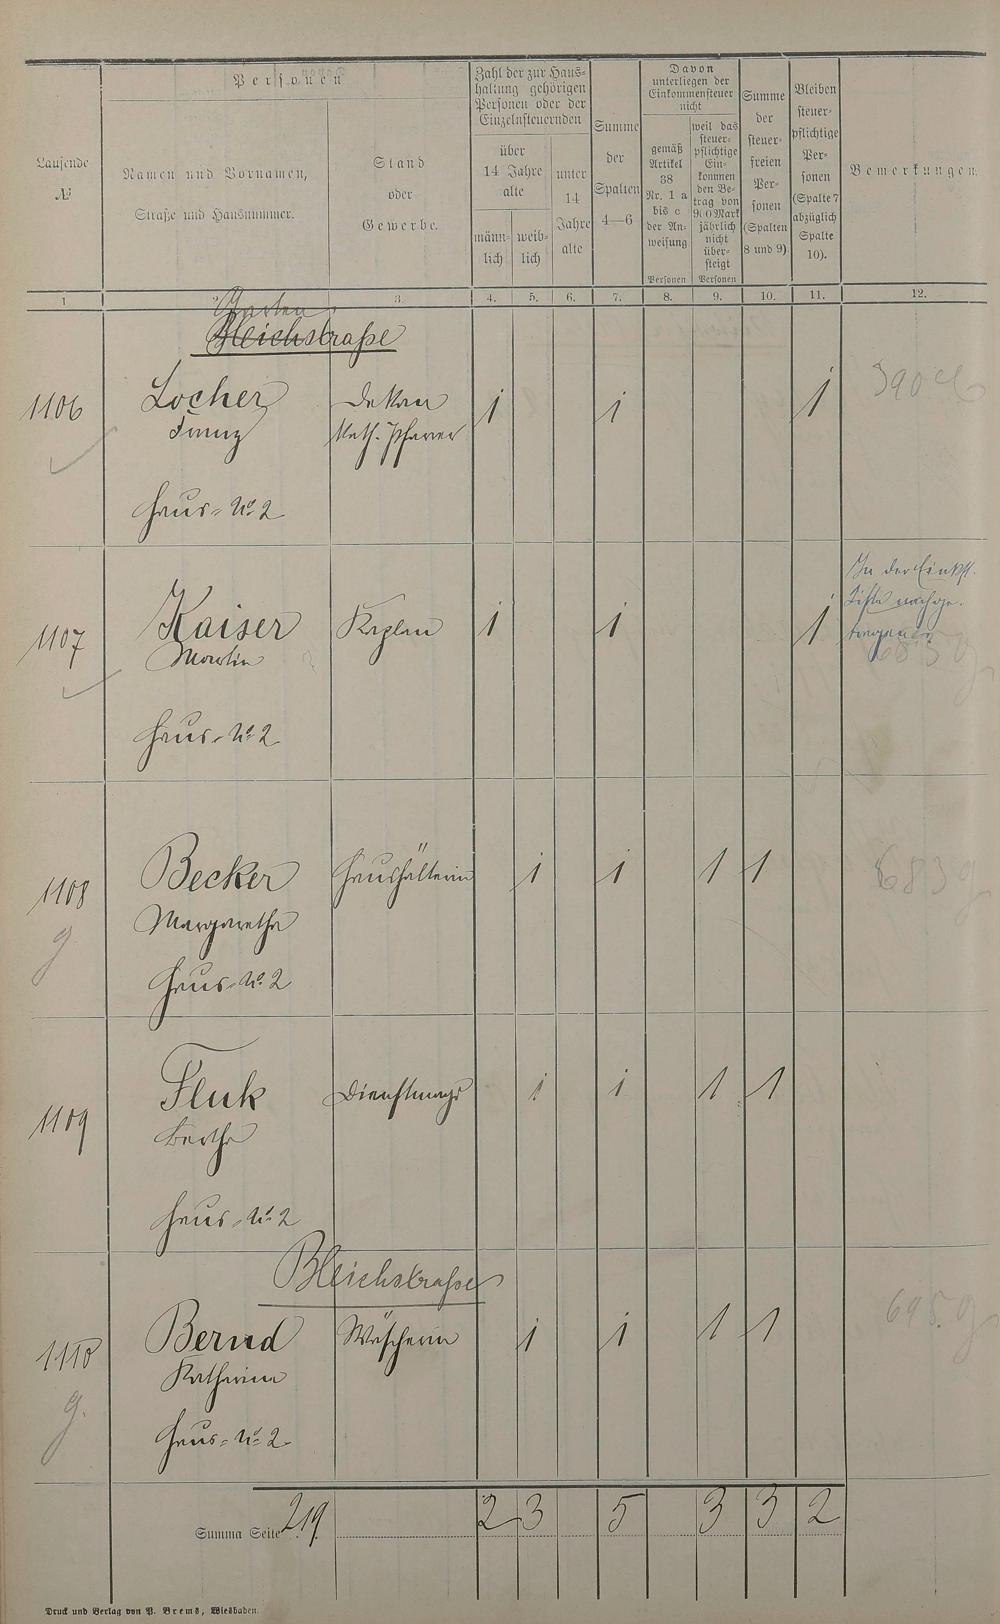 Laufende
№
Personen
Namen und Vornamen,
Straße und Hausnummer.
Stand
oder
Gewerbe.
Zahl der zur Haus-
haltung gehörigen
Personen oder der
Einzelnsteuernden
über
14 Jahre
alte
männ-
lich
weib-
lich
unter
14
Jahre
alte
Summe
der
Spalten
4—6
Davon
unterliegen der
Einkommensteuer
nicht
gemäß
Artikel
38
Nr. 1 a
bis c
der An-
weisung
Personen
weil das
steuer-
pflichtige
Ein-
kommen
den Be-
trag von
900 Mark
jährlich
nicht
über-
steigt
Personen
Summe
der
steuer-
freien
Per-
sonen
(Spalten
8 und 9).
Bleiben
steuer-
pflichtige
Per-
sonen
(Spalte 7
abzüglich
Spalte
10).
Bemerkungen.
1 2. 3. 4. 5. 6. 7. 8. 9. 10. 11. 12.
Garten
Bleichstraße
1106 Locher Dekan 1 1 1 390
Franz Kath. Pfarrer
Haus-No 2
1107 Kaiser Kaplan 1 1 1 In der Einkst.
Martin Liste nachge-
tragen
683 g
Haus-No 2
1108 Becker Haushälterin 1 1 1 1 683 g
g Margaretha
Haus-No 2
1109 Fluk Dienstmagd 1 1 1 1
Bertha
Haus-No 2
Bleichstraße
1110 Bernd Wäscherin 1 1 1 1 695. g
g. Katharina
Haus-No 2
Summa Seite 219. 2 3 5 3 3 2
Druck und Verlag von P. Brems, Wiesbaden.